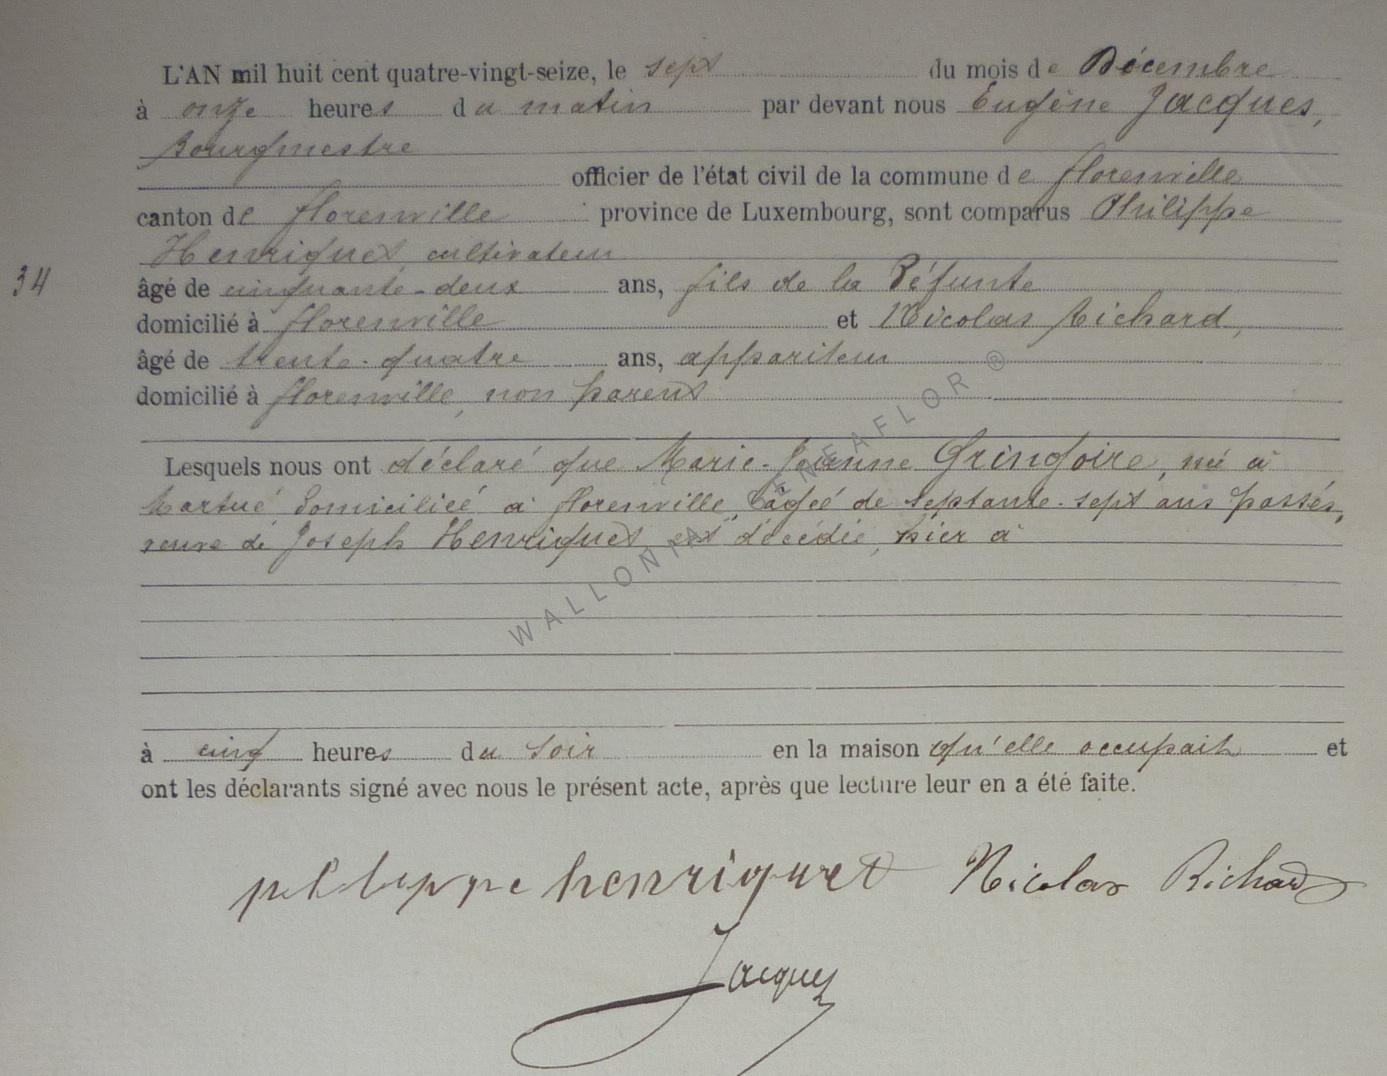 L'AN mil huit cent quatre-vingt-seize, le sept du mois de Décembre
à onze heures du matin par devant nous Eugène Jacques,
Bourgmestre
officier de l'état civil de la commune de florenville
canton de florenville province de Luxembourg, sont comparus Philippe
Henriquet cultivateur
34
âgé de cinquante-deux ans, fils de la Défunte
domicilié à florenville et Nicolas Richard,
âgé de trente-quatre ans, appariteur
domicilié à florenville, non parents
Lesquels nous ont déclaré que Marie-Jeanne Gringoire, né à
Martué domiciliée à florenville, âgée de septante-sept ans passés,
veuve de Joseph Henriquet est décédée, hier à
WALLONIA GENEAFLOR ®
à cinq heures du soir en la maison qu'elle occupait et
ont les déclarants signé avec nous le présent acte, après que lecture leur en a été faite.
philippe henriquet Nicolas Richard
Jacques